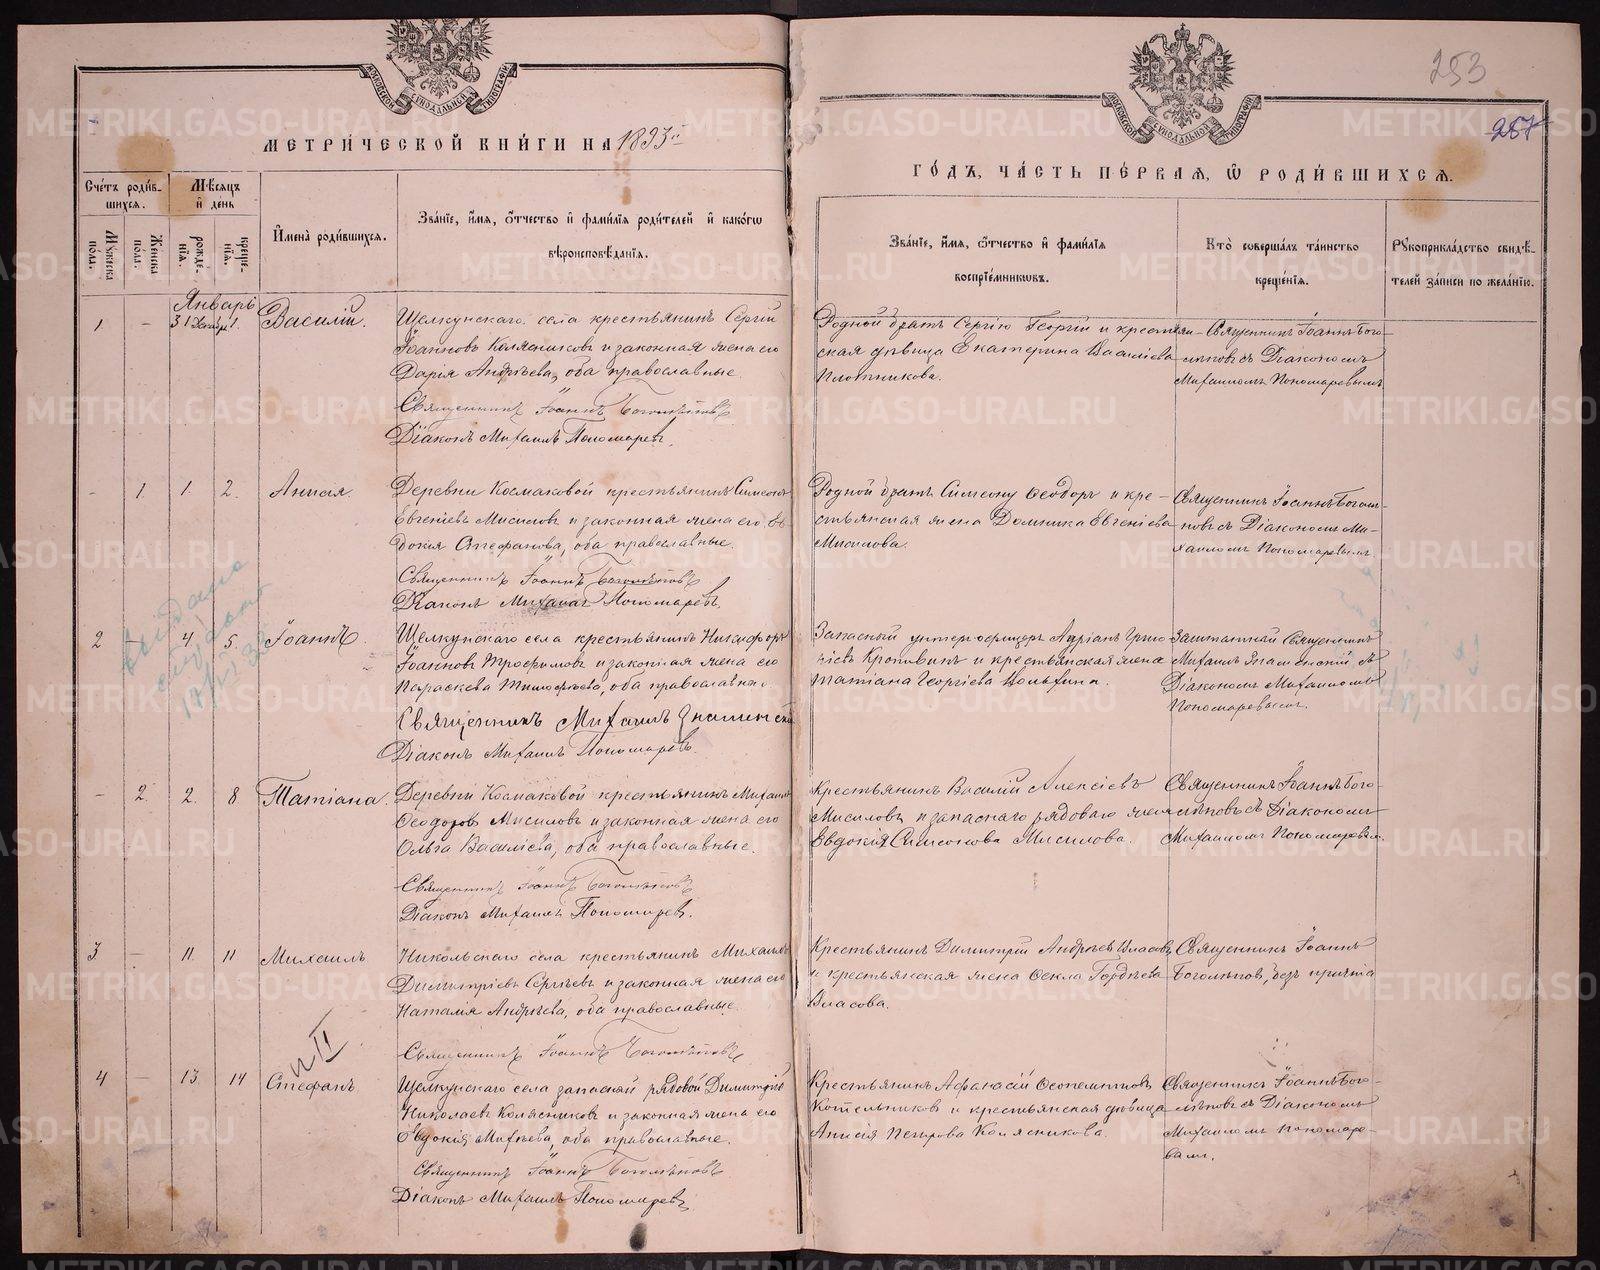 253
257
МЕТРИ́ЧЕСКОЙ КНИ́ГИ НА 1893й
ГО́ДЪ, ЧА́СТЬ ПЕ́РВАѦ, Ѽ РОДИ́ВШИХСѦ.
Сче́тъ роди́в-
шихсѧ.
Мѣ́сѧцъ
и҆ день
Мꙋжеска
пола̀.
Женска
пола̀.
рожде́-
нїѧ.
креще́-
нїѧ.
И҆мена̀ роди́вшихсѧ.
Зва́нїе, и҆́мѧ, ѻ҆́тчество и҆ фами́лїѧ роди́телей и҆ како́гѡ
вѣроисповѣ́данїѧ.
Зва́нїе, и҆́мѧ, ѻ҆́тчество и҆ фами́лїѧ
воспрїе́мникѡвъ.
Кто̀ соверша́лъ та́инство
креще́нїѧ.
Рꙋкоприкла́дство свидѣ́-
телей за́писи по жела́нїю.
Январь
1. - 31 Декабр. 1. Василій.
Щелкунскаго села крестьянинъ Сергій
Іоанновъ Колясниковъ и законная жена его
Дарія Андреева, оба православные.
Священникъ Іоаннъ Боголѣповъ
Діаконъ Михаилъ Пономаревъ.
Родной братъ Сергію Георгій и крестьян-
ская дѣвица Екатерина Васильева
Плотникова.
Священникъ Іоаннъ Бого-
лѣповъ съ Діакономъ
Михаиломъ Пономаревымъ
- 1. 1. 2. Анисія.
Деревни Космаковой крестьянинъ Симеонъ
Евгеніевъ Мисиловъ и законная жена его Ев
докія Стефанова, оба православные.
Священникъ Іоаннъ Боголѣповъ
Діаконъ Михаилъ Пономаревъ.
Родной братъ Симеону Ѳеодоръ и кре-
стьянская жена Домника Евгеніева
Мисилова.
Священникъ Іоаннъ Боголѣ-
повъ съ Діакономъ Ми-
хаиломъ Пономаревымъ.
2 - 4 5. Іоаннъ.
Щелкунскаго села крестьянинъ Никифоръ
Іоанновъ Трофимовъ и законная жена его
Параскева Тимофеева, оба православные.
Священникъ Михаилъ Знаменскій
Діаконъ Михаилъ Пономаревъ
Запасный унтеръ-офицеръ Адріанъ
Кропивинъ и крестьянская жена
Татіана Георгіева
Заштатный Священникъ
Михаилъ Знаменскій съ
Діакономъ Михаиломъ
Пономаревымъ.
выдано
- 2. 2. 8 Татіана.
Деревни Космаковой крестьянинъ Михаилъ
Ѳеодоровъ Мисиловъ и законная жена его
Ольга Васильева, оба православные.
Священникъ Іоаннъ Боголѣповъ
Діаконъ Михаилъ Пономаревъ.
Крестьянинъ Василій Алексіевъ
Мисиловъ и запаснаго рядоваго жена
Евдокія Симеонова Мисилова.
Священникъ Іоаннъ Бого-
лѣповъ съ Діакономъ
Михаиломъ Пономаревым.
3 - 11. 11 Михаилъ
Никольскаго села крестьянинъ Михаилъ
Димитріевъ Сергѣевъ и законная жена его
Наталія Андреева, оба православные.
Священникъ Іоаннъ Боголѣповъ
Крестьянинъ Димитрій Андреевъ Власовъ
и крестьянская жена Ѳекла Гордѣева
Власова.
Священникъ Іоаннъ
Боголѣповъ, безъ причта
4 - 13. 14 Стефанъ.
Щелкунскаго села запасный рядовой Димитрій
Николаевъ Колясниковъ и законная жена его
Евдокія Матвѣева, оба православные.
Священникъ Іоаннъ Боголѣповъ
Діаконъ Михаилъ Пономаревъ.
Крестьянинъ Афанасій Ѳеопемптовъ
Котельниковъ и крестьянская дѣвица
Анисія Петрова Колясникова.
Священникъ Іоаннъ Бого-
лѣповъ съ Діакономъ
Михаиломъ Пономаре-
вымъ.
METRIKI.GASO-URAL.RU